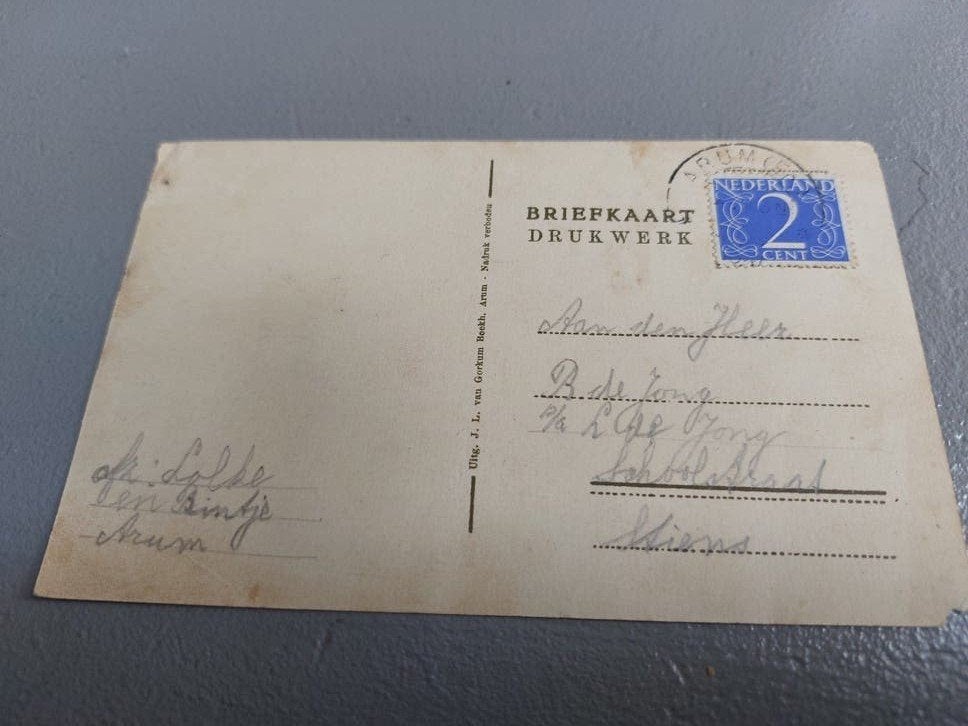 ARUM
NEDERLAND
2
CENT
BRIEFKAART
DRUKWERK
Uitg. J. L. van Gorkum Boekh. Arum - Nadruk verboden
Aan den Heer
B de Jong
p/a L de Jong
Schoolstraat
Stiens
Lolke
en Bintje
Arum